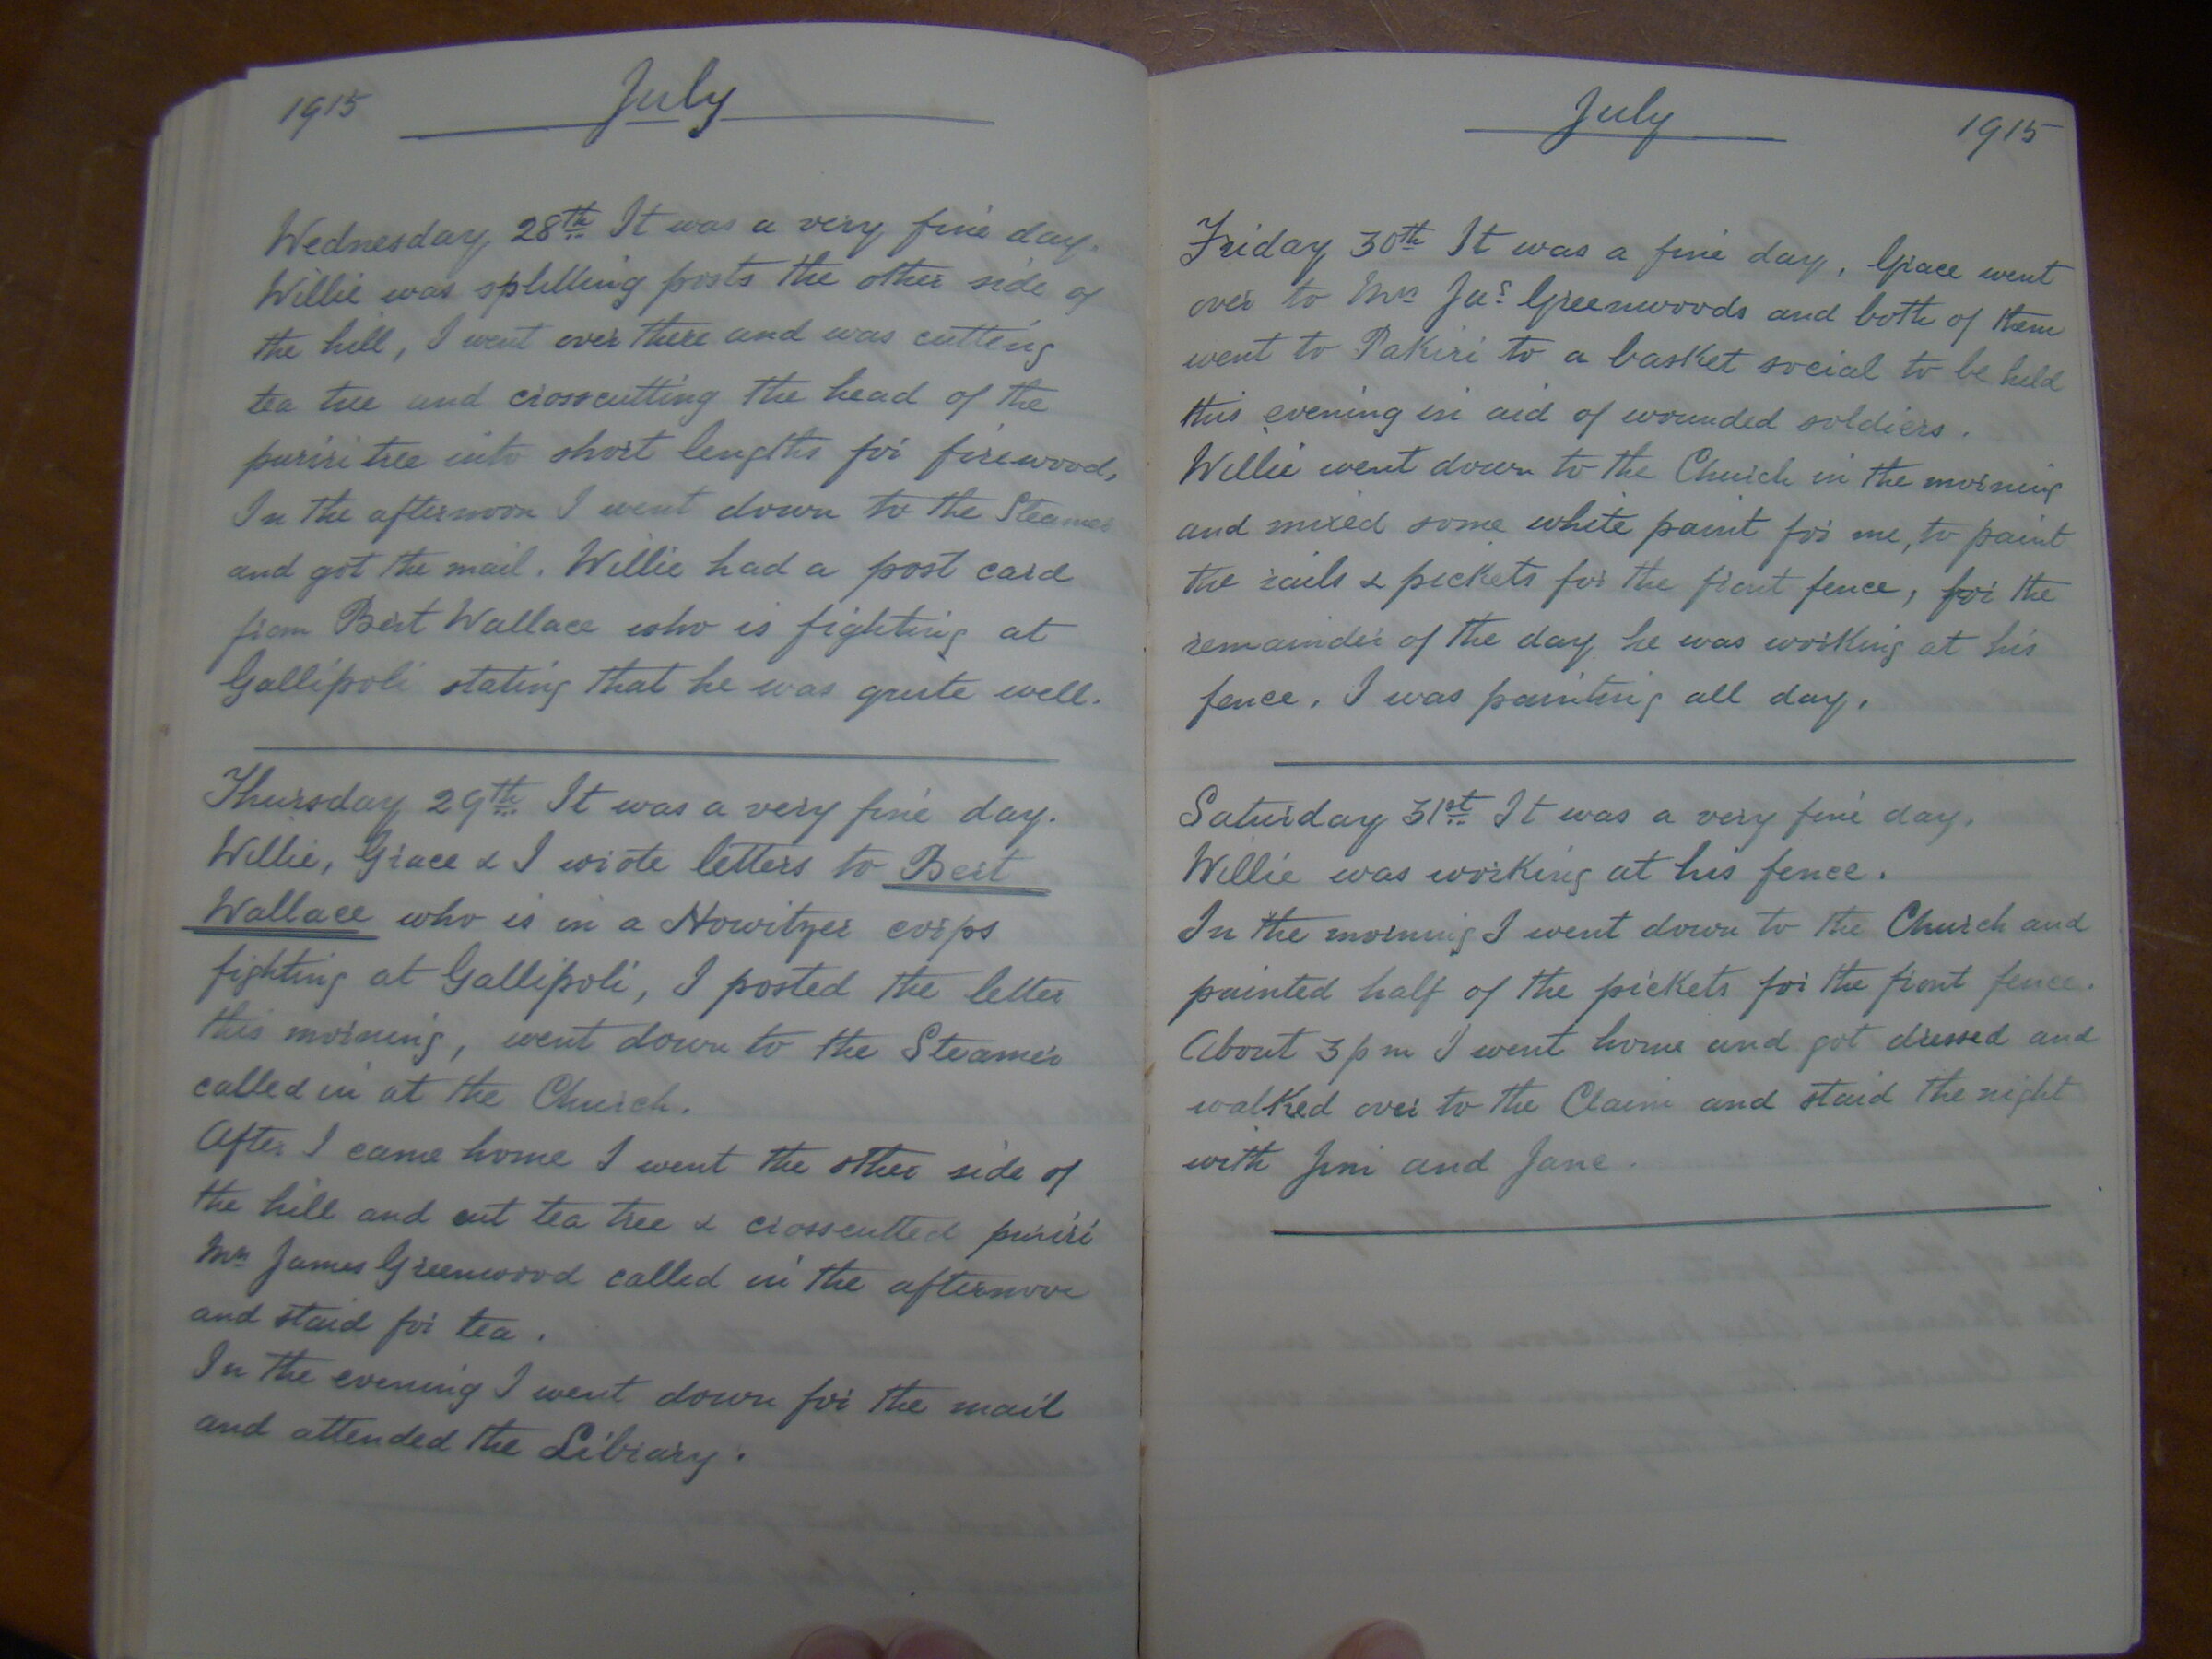 1915 July
Wednesday 28th It was a very fine day.
Willie was splitting posts the other side of
the hill, I went over there and was cutting
tea tree and crosscutting the head of the
puriri tree into short lengths for firewood,
In the afternoon I went down to the Steamer
and got the mail. Willie had a post card
from Bert Wallace who is fighting at
Gallipoli stating that he was quite well.
Thursday 29th It was a very fine day.
Willie, Grace & I wrote letters to Bert
Wallace who is in a Howitzer corps
fighting at Gallipoli, I posted the letter
this morning, went down to the Steamer
called in at the Church.
After I came home I went the other side of
the hill and cut tea tree & crosscutted puriri
Mrs James Greenwood called in the afternoon
and staid for tea.
In the evening I went down for the mail
and attended the Library.
July 1915
Friday 30th It was a fine day, Grace went
over to Mrs Jas Greenwoods and both of them
went to Pakiri to a basket social to be held
this evening in aid of wounded soldiers.
Willie went down to the Church in the morning
and mixed some white paint for me, to paint
the rails & pickets for the front fence, for the
remainder of the day he was working at his
fence, I was painting all day.
Saturday 31st It was a very fine day,
Willie was working at his fence.
In the morning I went down to the Church and
painted half of the pickets for the front fence.
About 3 pm I went home and got dressed and
walked over to the Claim and staid the night
with Jim and Jane.